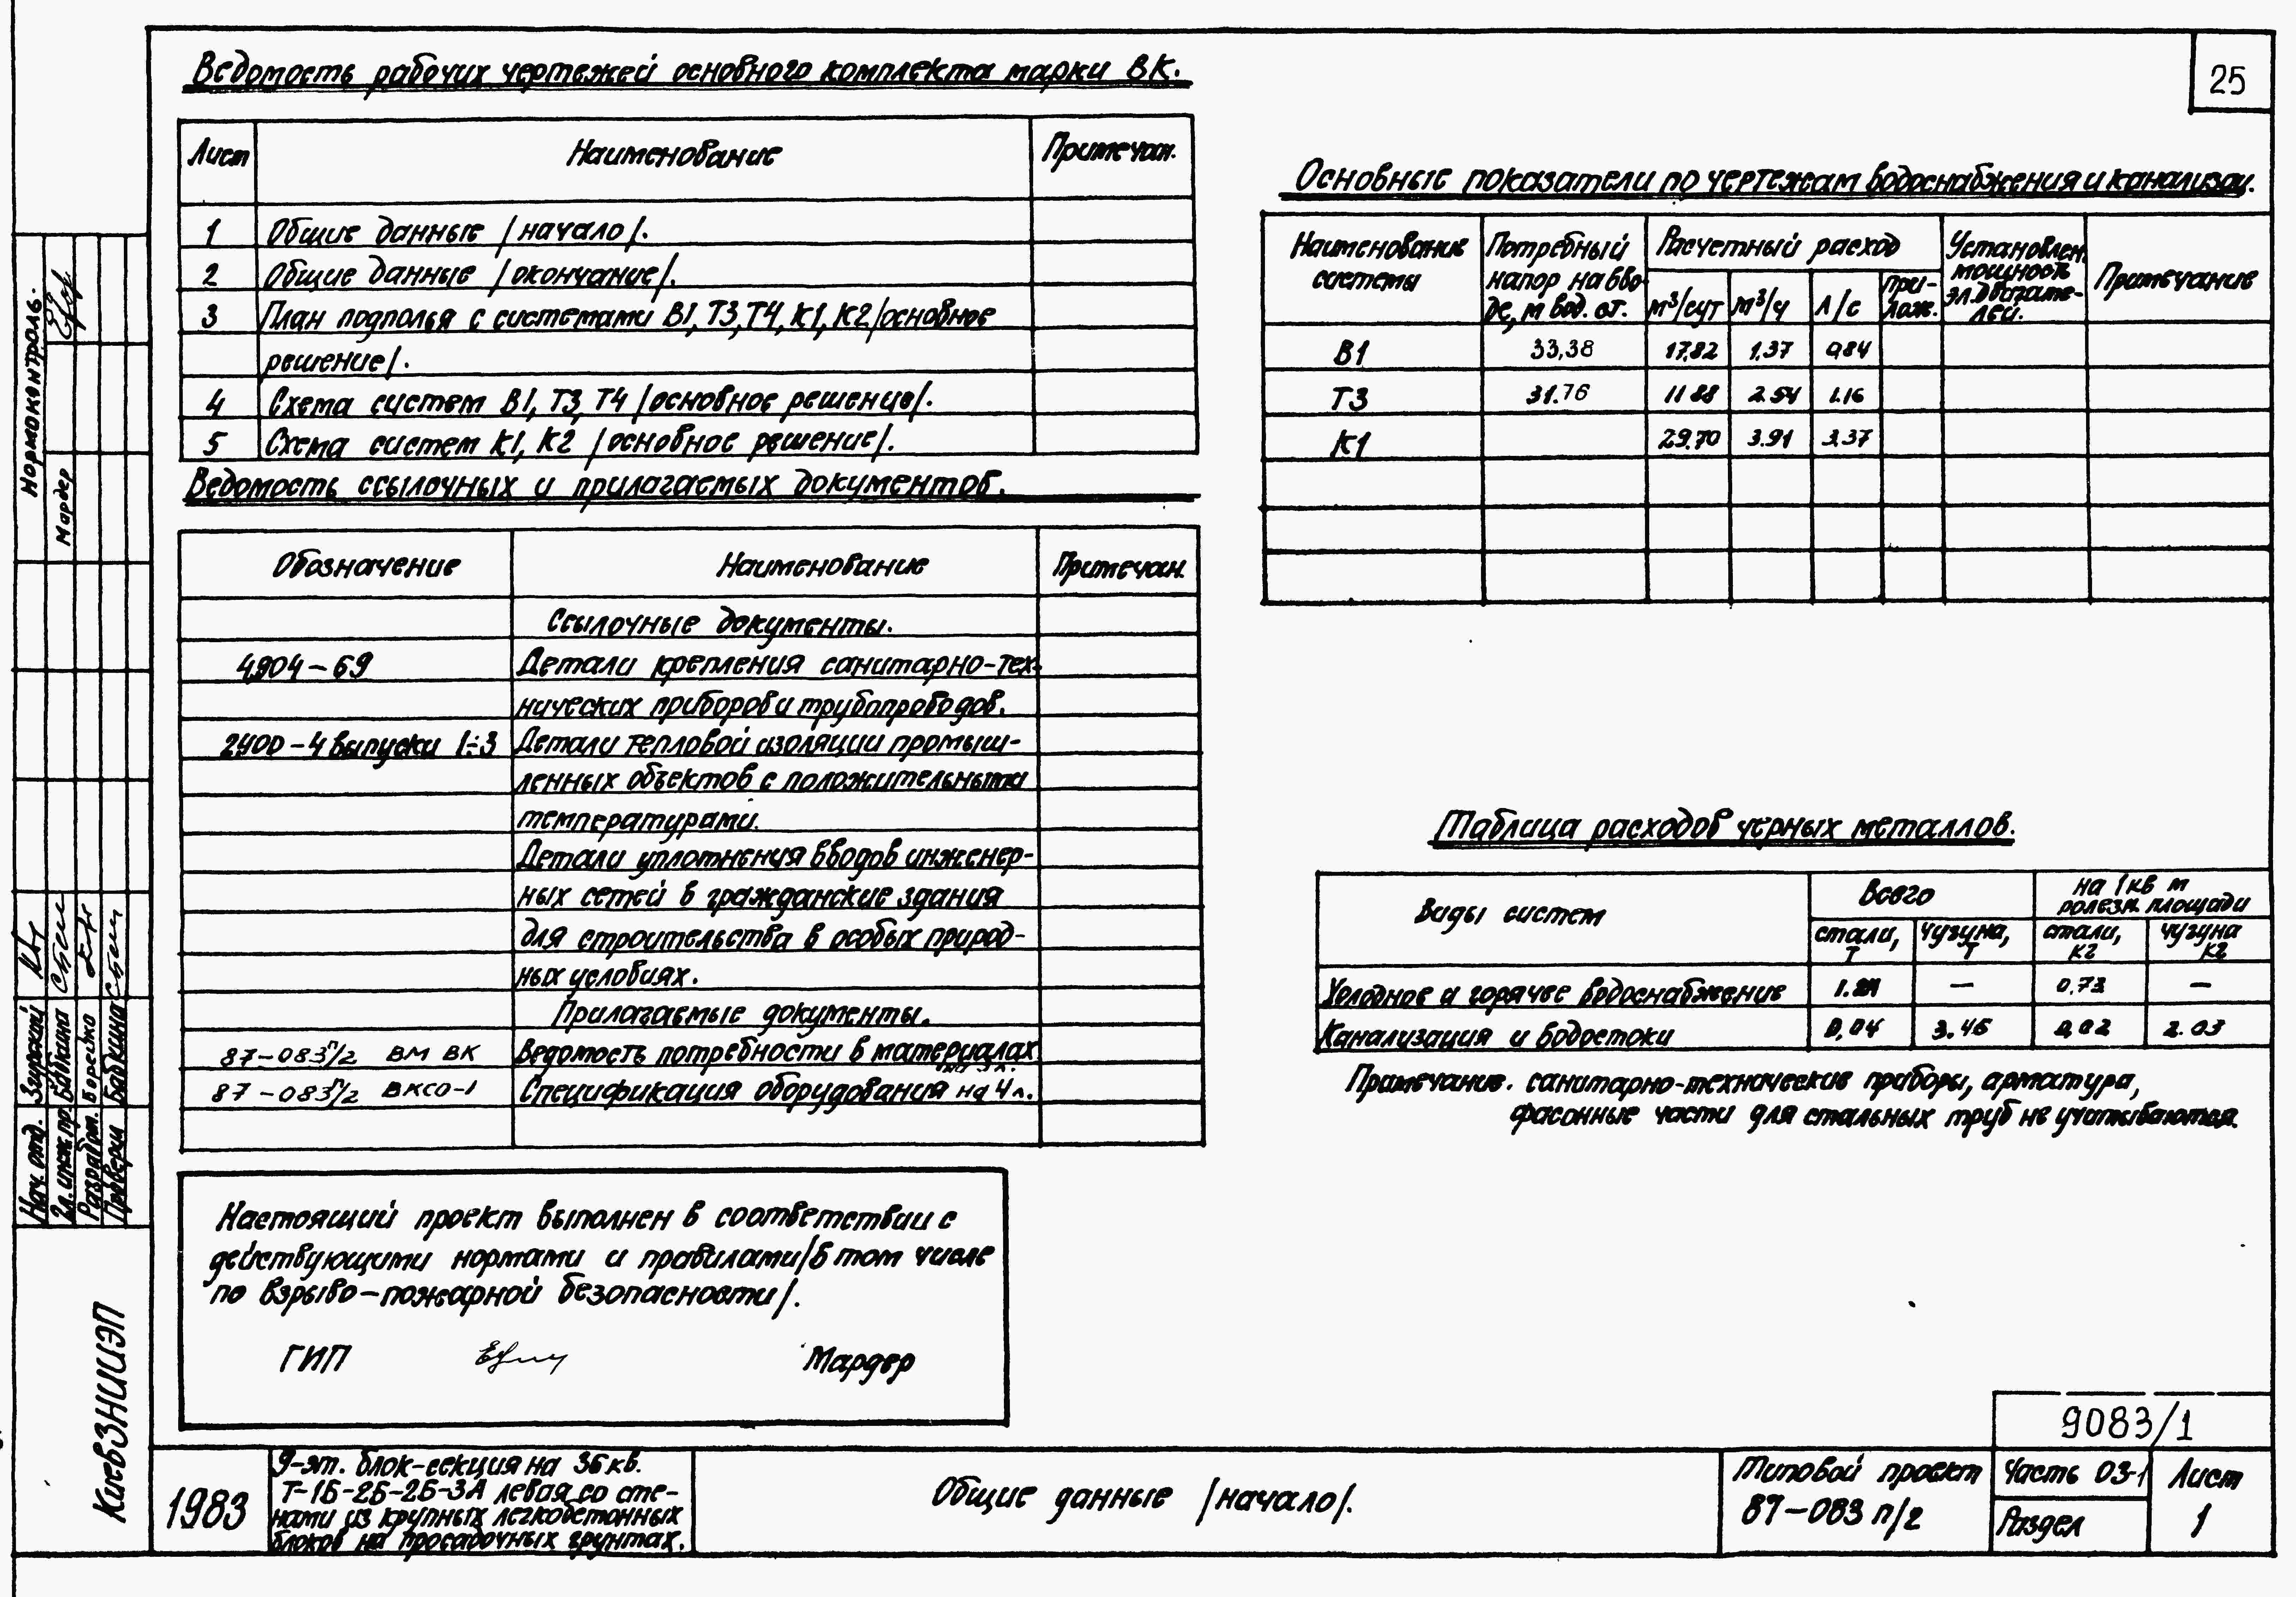 25
Ведомость рабочих чертежей основного комплекта марки ВК.
Лист Наименование Примечан.
1 Общие данные /начало/.
2 Общие данные /окончание/.
3 План подполья с системами В1, Т3, Т4, К1, К2 /основное
решение/.
4 Схема систем В1, Т3, Т4 /основное решение/.
5 Схема систем К1, К2 /основное решение/.
Ведомость ссылочных и прилагаемых документов.
Обозначение Наименование Примечан.
Ссылочные документы.
4.904-69 Детали крепления санитарно-тех-
нических приборов и трубопроводов.
2.400-4 выпуски 1÷3 Детали тепловой изоляции промыш-
ленных объектов с положительными
температурами.
Детали уплотнения вводов инженер-
ных сетей в гражданские здания
для строительства в особых природ-
ных условиях.
Прилагаемые документы.
87-083п/2 ВМ ВК Ведомость потребности в материалах
87-083п/2 ВКСО-1 Спецификация оборудования на 4 л.
Настоящий проект выполнен в соответствии с
действующими нормами и правилами /в том числе
по взрыво-пожарной безопасности/.
ГИП Мардер
Основные показатели по чертежам водоснабжения и канализац.
Наименование
системы
Потребный
напор на вво-
де, м вод. ст.
Расчетный расход
м³/сут м³/ч л/с при
пож.
Установлен.
мощность
эл.двигате-
лей.
Примечание
В1 33,38 17,82 1,37 0,84
Т3 31.76 11.88 2.54 1.16
К1 29.70 3.91 3.37
Таблица расходов черных металлов.
Виды систем Всего на 1 кв м
полезн. площади
стали,
т
чугуна,
т
стали,
кг
чугуна
кг
Холодное и горячее водоснабжение — 0,73 —
Канализация и водостоки 0,04 3.45 0,02 2.03
Примечание. санитарно-технические приборы, арматура,
фасонные части для стальных труб не учитываются.
Нормоконтроль.
Мардер
Нач. отд. Згурский
Гл. инж. пр. Бабкина
Разраб. Борейко
Проверил Бабкина
КиевЗНИИЭП
1983
9-эт. блок-секция на 36 кв.
Т-1Б-2Б-2Б-3А левая со сте-
нами из крупных легкобетонных
блоков на просадочных грунтах.
Общие данные /начало/.
9083/1
Типовой проект
87-083 п/2
Часть 03-1
Раздел
Лист
1